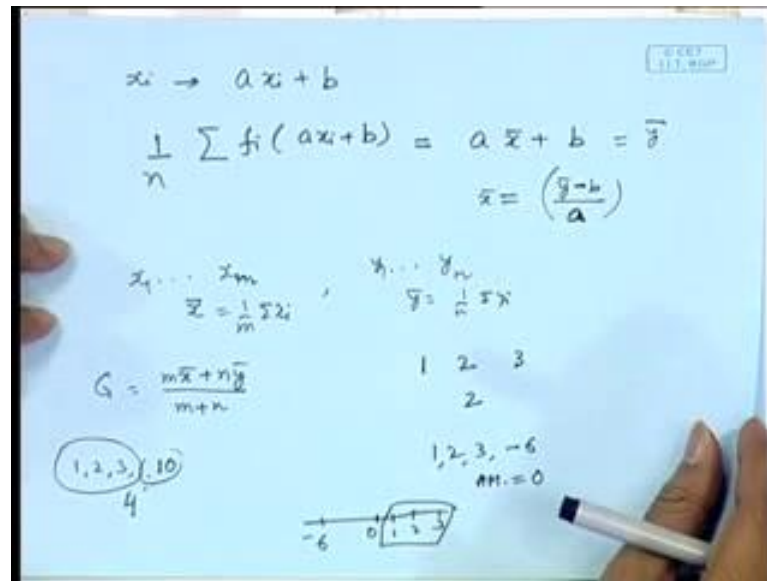 © CET
I.I.T. KGP
xi → a xi + b
1/n ∑ fi ( axi + b) = a x̄ + b = ȳ
x̄ = ( (ȳ-b)/a )
x₁ ... xm , y₁ ... yn
x̄ = 1/m Σxi ȳ = 1/n Σyi
G = (mx̄ + nȳ)/(m+n)
1 2 3
2
1, 2, 3, 10
4
1, 2, 3, -6
AM. = 0
-6 0 1 2 3